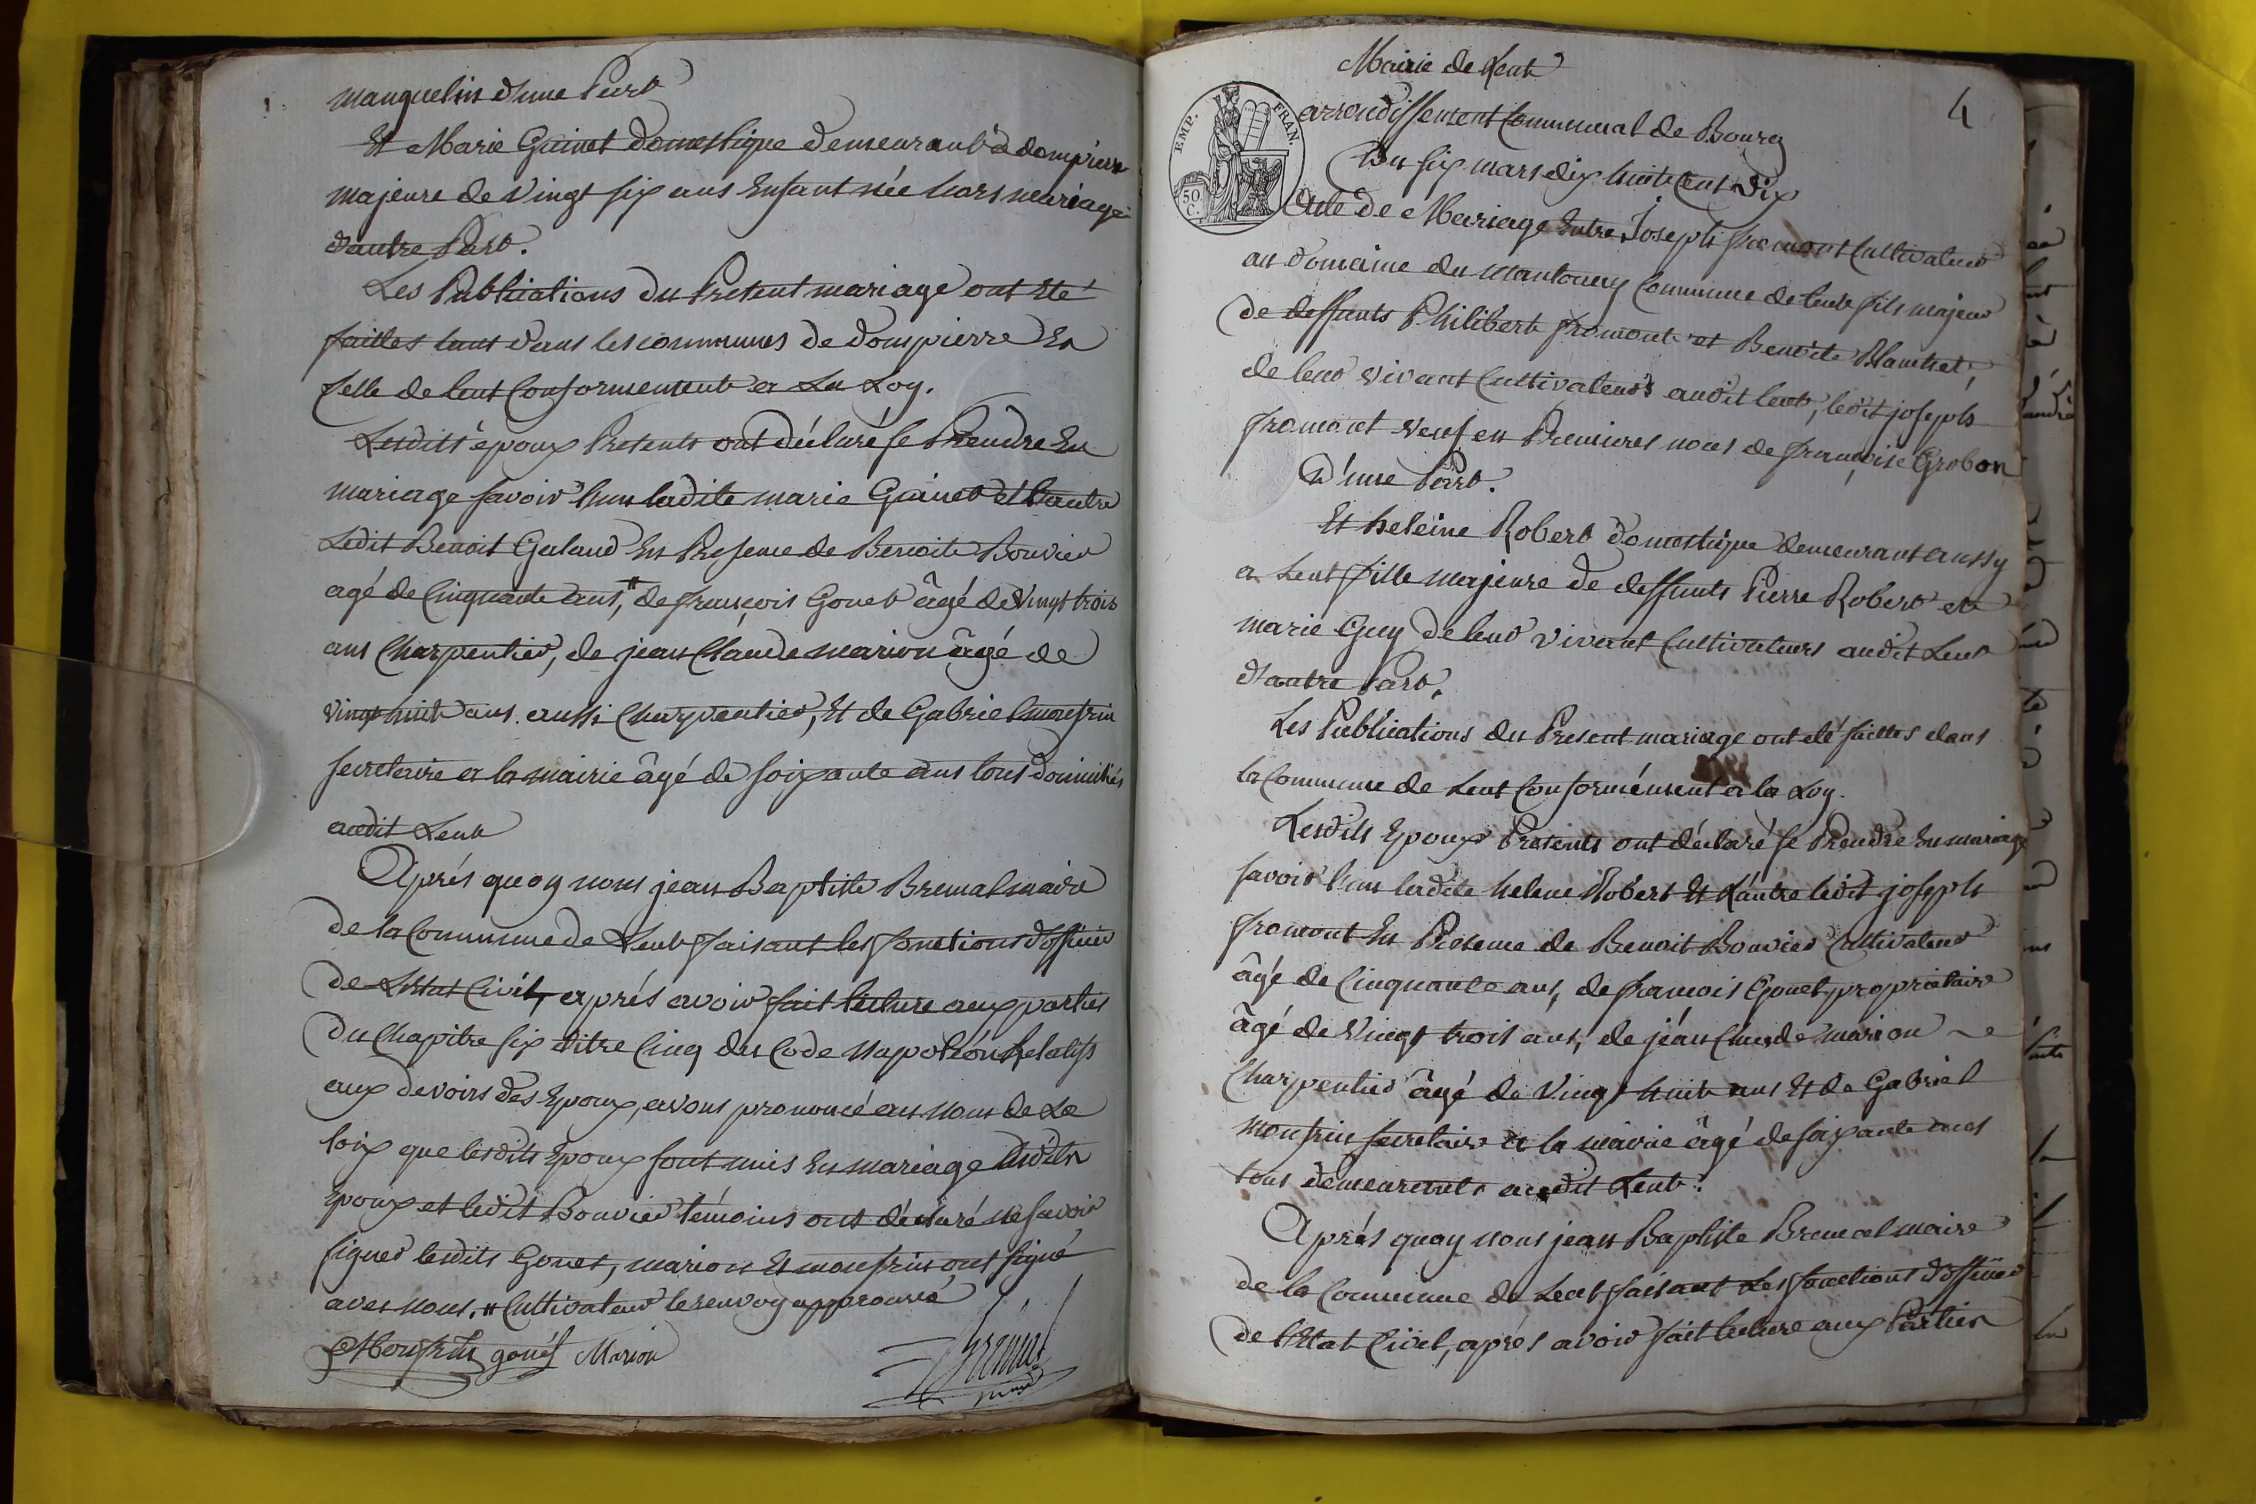 manquelin d'une Part
Et Marie Guinet domestique demeurant à dompierre
majeure de vingt six ans Enfant née hors mariage
d'autre Part.
Les Publications du Present mariage ont Eté
faittes tant dans les communes de dompierre En
Celle de lent Conformement a La Loy.
Lesdits époux Presents ont déclaré se Prendre En
mariage savoir l'un ladite marie Guinet et l'autre
Ledit Benoit Galand En Presence de Benoite Bouvier
agé de Cinquante ans,# de françois Gonet âgé de vingt trois
ans Charpentier, de jean Claude marion âgé de
vingt huit ans aussi Charpentier, Et de Gabriel monfrin
secretaire a la mairie âgé de soixante ans tous domiciliés
audit Lent
Aprés quoy nous jean Baptiste Bremal maire
de la Commune de Lent faisant les fonctions d'officier
de L'Etat Civil, aprés avoir fait lecture aux parties
du Chapitre six titre Cinq du Code napoléon Relatifs
aux devoirs des Epoux, avons prononcé au nom de La
loix que lesdits Epoux sont unis En mariage lesdits
Epoux et ledit Bouvier témoins ont déclaré ne savoir
signer lesdits Gonet, marion Et monfrin ont signé
avec nous. # Cultivateur le renvoy approuvé
Monfrin gonet Marion
Bremal
maire
4
Mairie de Lent
arrondissement Communal de Bourg
EMP. FRAN.
50 C.
Du six mars dix huit Cent Dix
Acte de Mariage Entre Joseph fromont Cultivateur
au domaine du mantoney Commune de lent fils majeur
de deffunts Philibert fromont et Benoite Blanchet,
de leur vivant Cultivateurs audit lent, ledit joseph
fromont veuf en Premieres noces de françoise Grobon
D'une Part.
Et heleine Robert domestique demeurant aussy
a Lent fille majeure de deffunts Pierre Robert et
marie Guy de leur vivant Cultivateurs audit Lent
d'autre Part.
Les Publications du Present mariage ont eté faittes dans
la Commune de Lent Conformément a la Loy.
Lesdits Epoux Presents ont déclaré se Prendre En mariage
savoir l'un ladite helene Robert Et L'autre ledit joseph
fromont En Presence de Benoit Bouvier Cultivateur
âgé de Cinquante ans, de francois Gonet, propriétaire
âgé de Vingt trois ans, de jéan Claude marion
Charpentier âgé de Vingt huit ans Et de Gabriel
monfrin secretaire a la mairie âgé de soixante ans
tous demeurants audit Lent.
Aprés quoy nous jean Baptiste Bremal maire
de la Commune de Lent faisant Les fonctions d'officier
de l'Etat Civil, aprés avoir fait lecture aux Parties